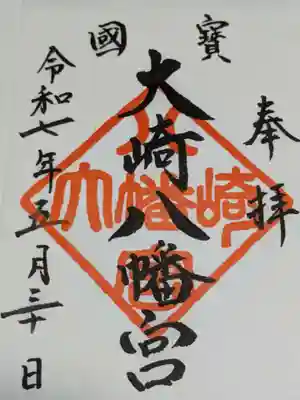 奉拝
國寶
大崎八幡宮
令和七年五月三十日
大幡崎